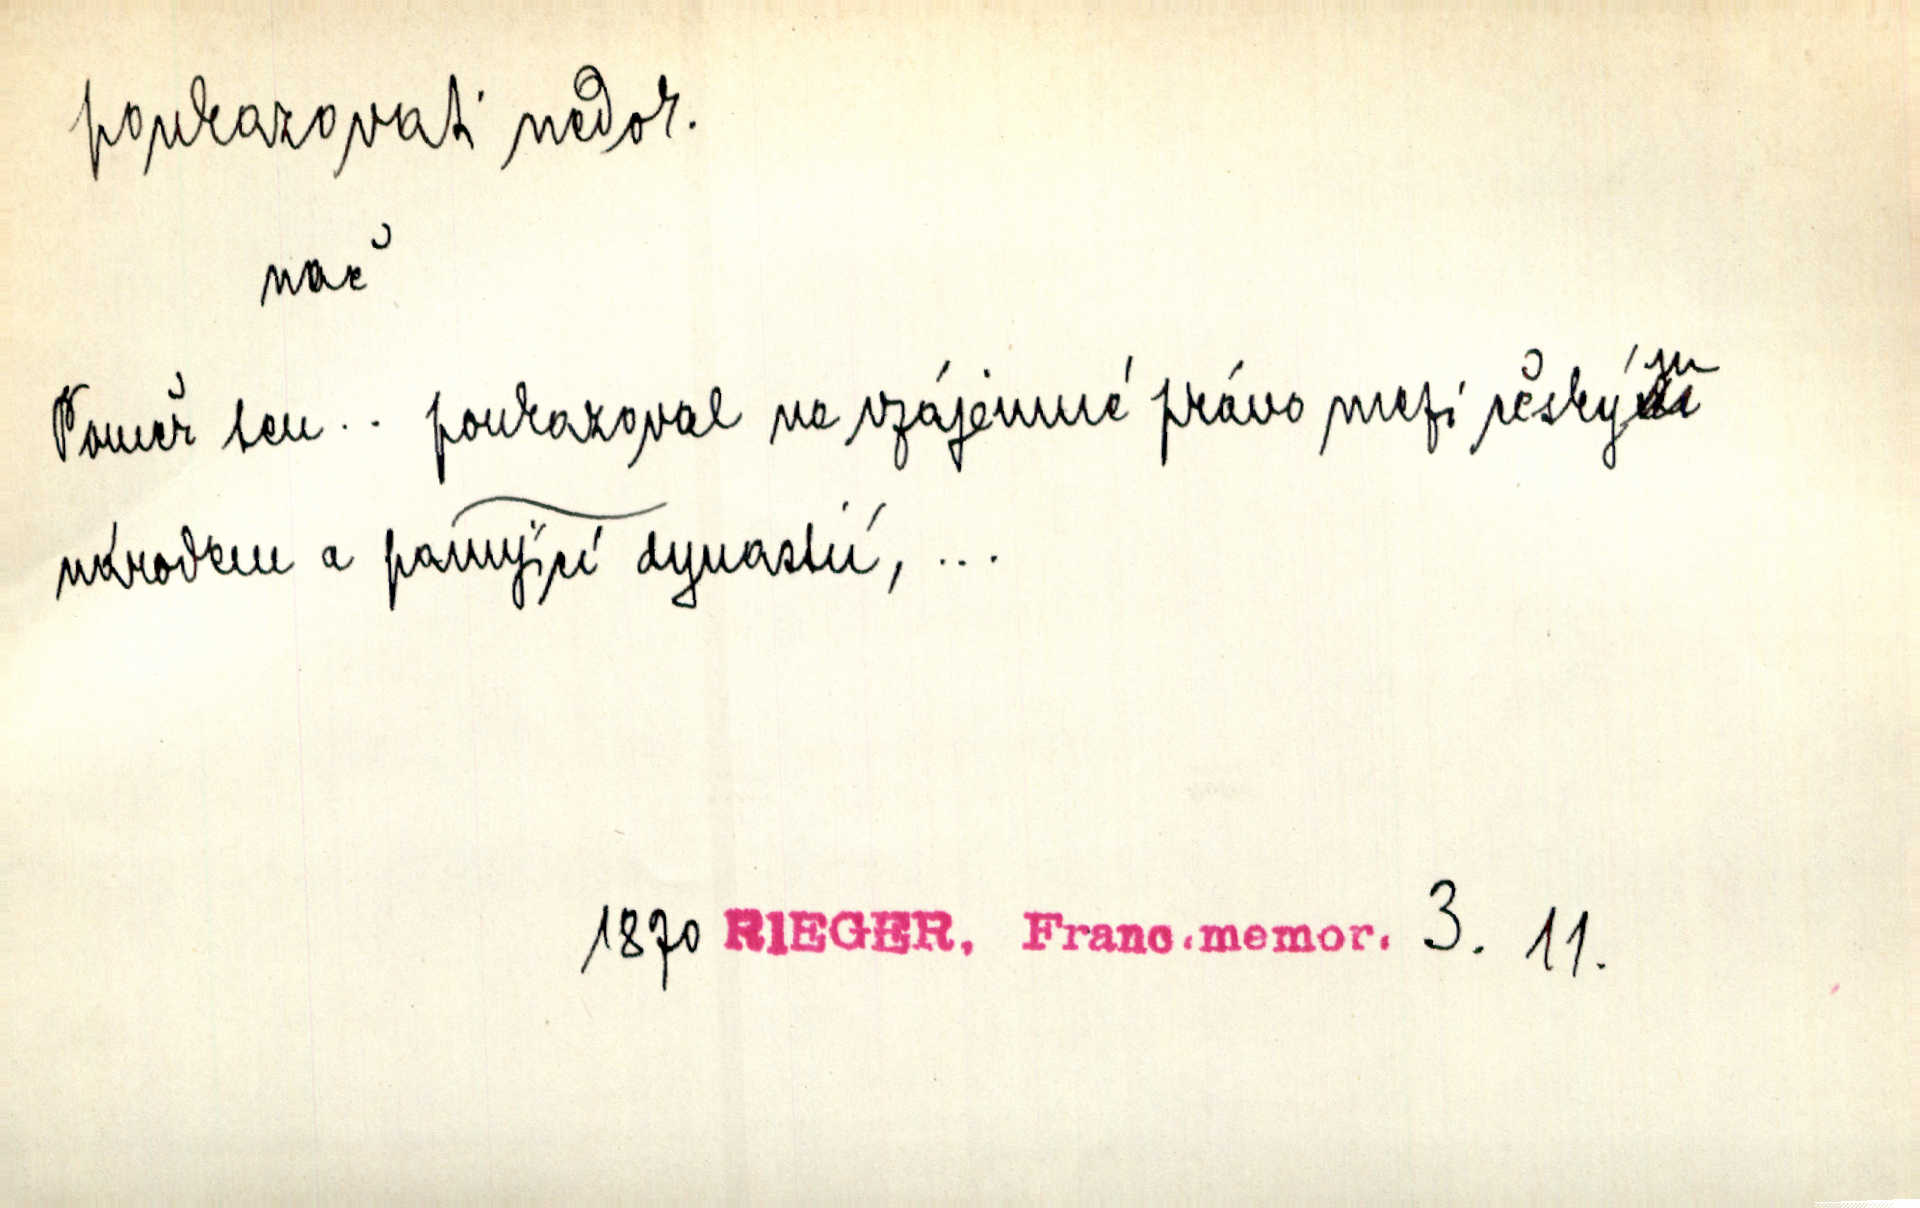 poukazovati nedok.
nač
Poměr ten .. poukazoval na vzájemné právo mezi českým
národem a panující dynastií, ...
1870 RIEGER, Franc.memor. 3. 11.